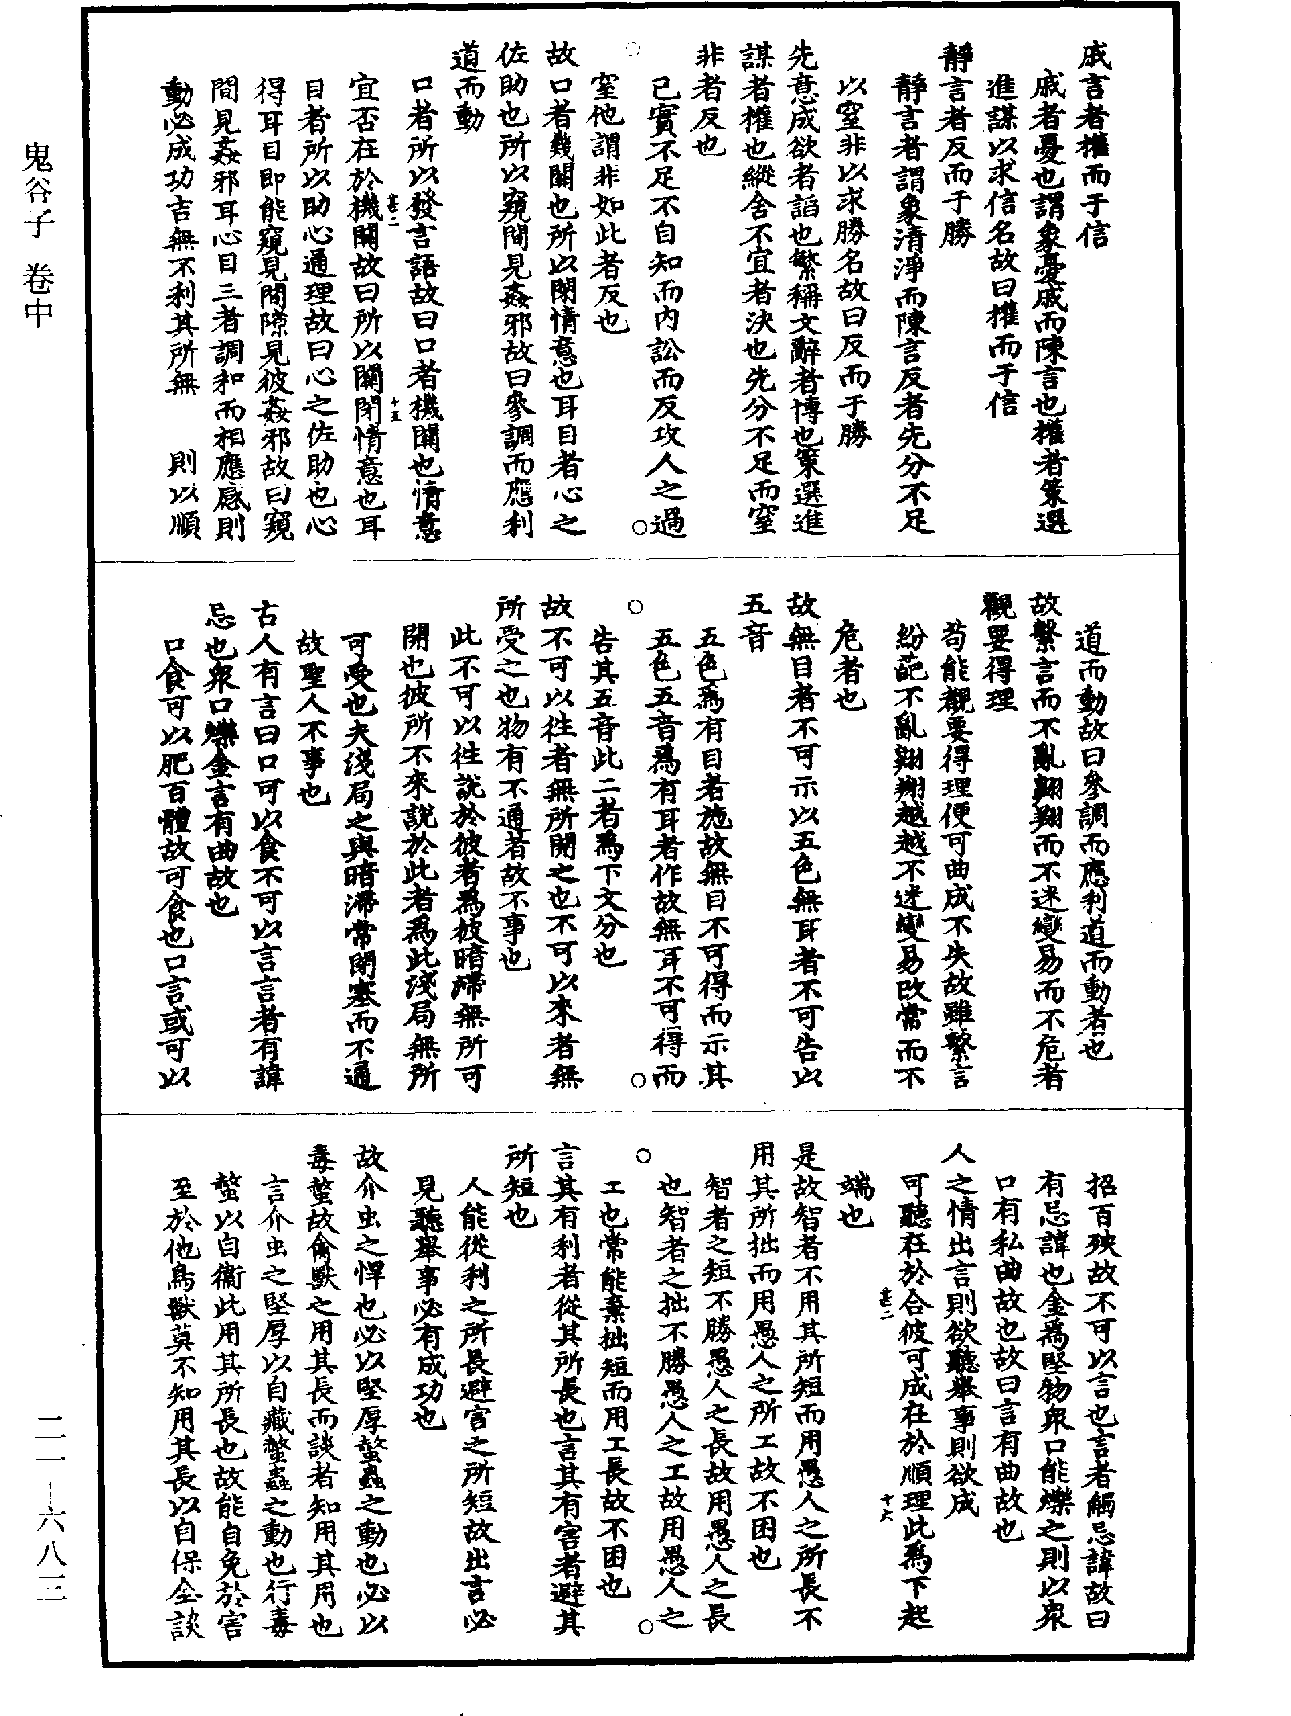 鬼谷子 卷中
戚言者權而于信
戚者憂也謂象憂戚而陳言也權者策選
進謀以求信名故曰權而于信
靜言者反而于勝
靜言者謂象清淨而陳言反者先分不足
以窒非以求勝名故曰反而于勝
先意成欲者諂也繁稱文辭者博也策選進
謀者權也縱舍不宜者決也先分不足而窒
非者反也
己實不足不自知而內訟而反攻人之過
窒他謂非如此者反也
故口者幾關也所以閉情意也耳目者心之
佐助也所以窺間見姦邪故曰參調而應利
道而動
口者所以發言語故曰口者機關也情意
宜否在於機關故曰所以關閉情意也耳
甚二
十五
目者所以助心通理故曰心之佐助也心
得耳目即能窺見間隙見彼姦邪故曰窺
間見姦邪耳心目三者調和而相應感則
動必成功吉無不利其所無 則以順
道而動故曰參調而應利道而動者也
故繫言而不亂翺翔而不迷變易而不危者
觀要得理
苟能覩要得理便可曲成不失故雖繫言
紛葩不亂翺翔越越不迷變易改常而不
危者也
故無目者不可示以五色無耳者不可告以
五音
五色爲有目者施故無目不可得而示其
五色五音爲有耳者作故無耳不可得而
告其五音此二者爲下文分也
故不可以往者無所開之也不可以來者無
所受之也物有不通者故不事也
此不可以往說於彼者爲彼暗滯無所可
開也彼所不來說於此者爲此淺局無所
可受也夫淺局之與暗滯常閉塞而不通
故聖人不事也
古人有言曰口可以食不可以言言者有諱
忌也衆口爍金言有曲故也
口食可以肥百體故可食也口言或可以
招百殃故不可以言也言者觸忌諱故曰
有忌諱也金爲堅物衆口能爍之則以衆
口有私曲故也故曰言有曲故也
人之情出言則欲聽舉事則欲成
可聽在於合彼可成在於順理此爲下起
甚二
十六
端也
是故智者不用其所短而用愚人之所長不
用其所拙而用愚人之所工故不困也
智者之短不勝愚人之長故用愚人之長
也智者之拙不勝愚人之工故用愚人之
工也常能棄拙短而用工長故不困也
言其有利者從其所長也言其有害者避其
所短也
人能從利之所長避害之所短故出言必
見聽舉事必有成功也
故介虫之悍也必以堅厚螫蟲之動也必以
毒螫故禽獸之用其長而談者知用其用也
言介虫之堅厚以自藏螫蟲之動也行毒
螫以自衞此用其所長也故能自免於害
至於他鳥獸莫不知用其長以自保全談
二一-六八三